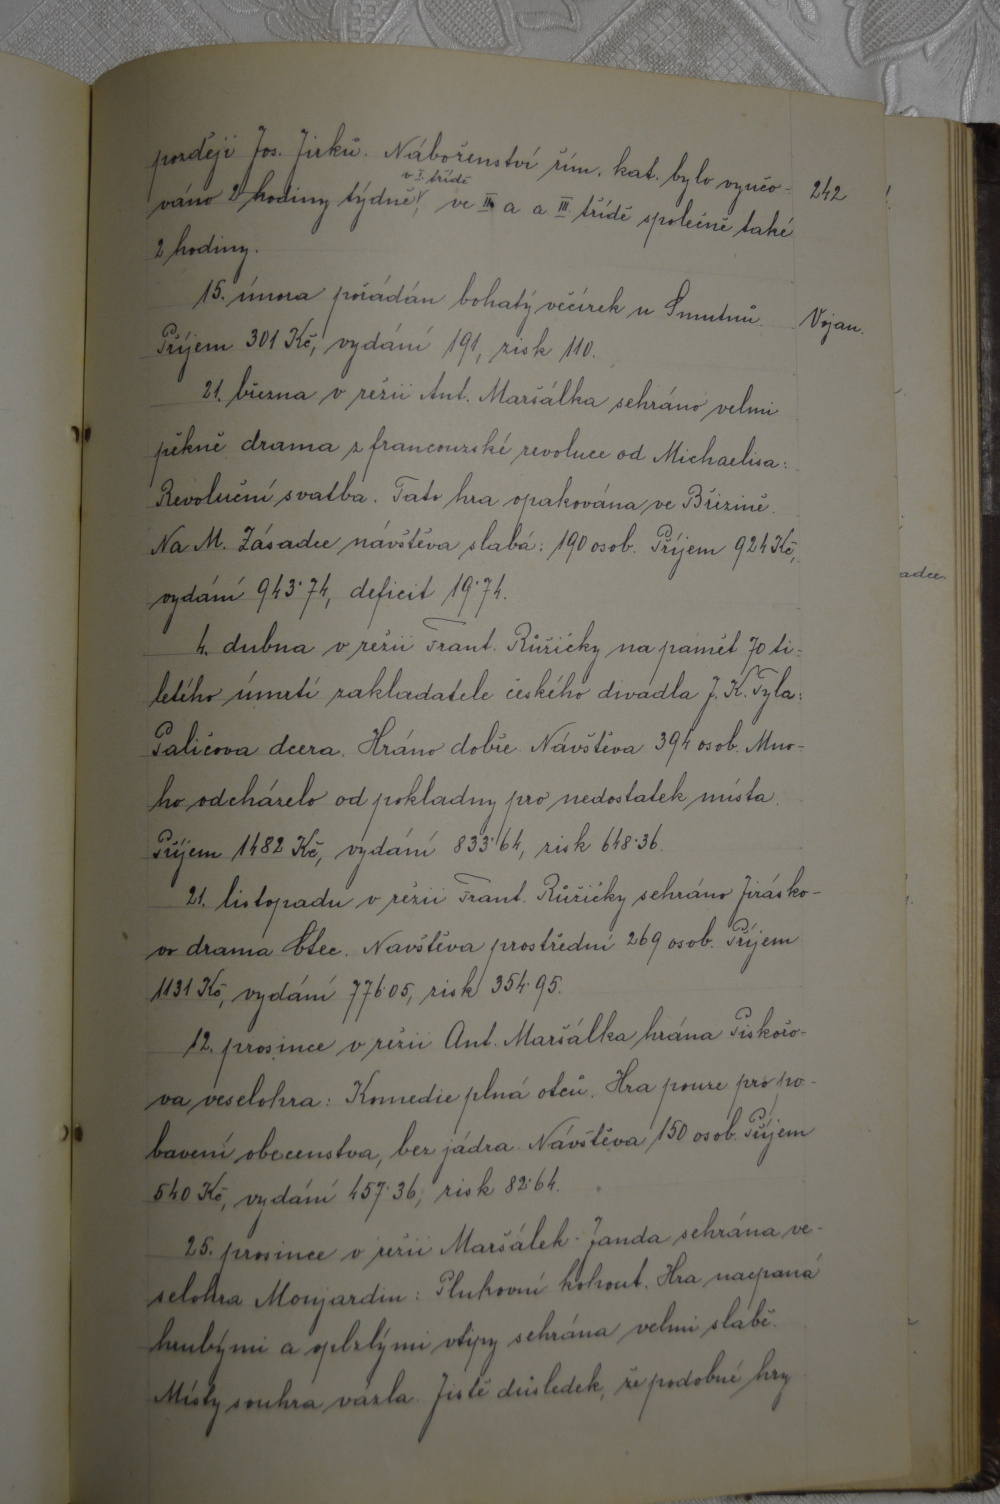 později Jos. Jirků. Náboženství řím. kat. bylo vyučo-
242
v I. třídě
váno 2 hodiny týdně, ve II. a a III třídě společně také
2 hodiny.
15. února pořádán bohatý večírek u Smutnů.
Vojan.
Příjem 301 Kč, vydání 191, zisk 110.
21. března v režii Ant. Maršálka sehráno velmi
pěkně drama z francouzské revoluce od Michaelisa:
Revoluční svatba. Tato hra opakována ve Březině.
Na M. Zásadce návštěva slabá: 190 osob. Příjem 924 Kč,
vydání 943·74, deficit 19·74.
4. dubna v režii Frant. Růžičky na pamět 70 ti-
letého úmrtí zakladatele českého divadla J. K. Tyla:
Paličova dcera. Hráno dobře. Návštěva 394 osob. Mno-
ho odcházelo od pokladny pro nedostatek místa.
Příjem 1482 Kč, vydání 833·64, zisk 648·36.
21. listopadu v režii Frant. Růžičky sehráno Jirásko-
vo drama Otec. Navštěva prostřední 269 osob. Příjem
1131 Kč, vydání 776·05, zisk 354·95.
12. prosince v režii Ant. Maršálka hrána Piskořo-
va veselohra: Komedie plná otců. Hra pouze pro po-
bavení obecenstva, bez jádra. Návštěva 150 osob. Příjem
540 Kč, vydání 457·36, zisk 82·64.
25. prosince v režii Maršálek-Janda sehrána ve-
selohra Monjardin: Plukovní kohout. Hra nacpaná
hrubými a oplzlými vtipy sehrána velmi slabě.
Místy souhra vázla. Jistě důsledek, že podobné hry
adce.